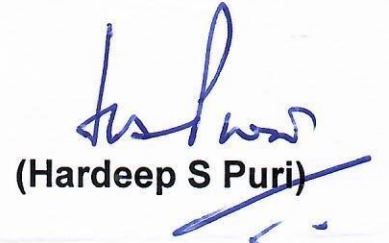 (Hardeep S Puri)